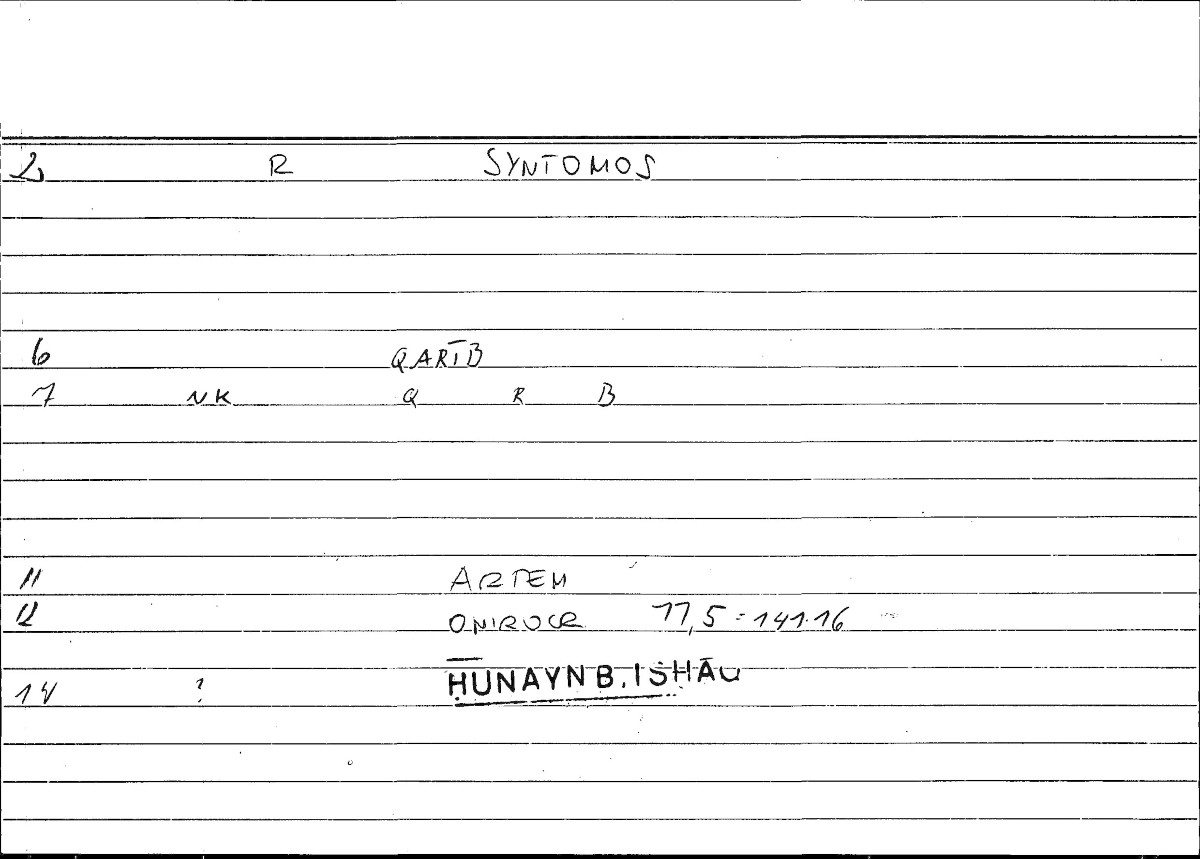 2 R SYNTOMOS
6 QARĪB
7 NK Q R B
11 ARTEM
12 ONIROCR 77,5 = 141.16
14 ? ḤUNAYN B. ISḤĀQ